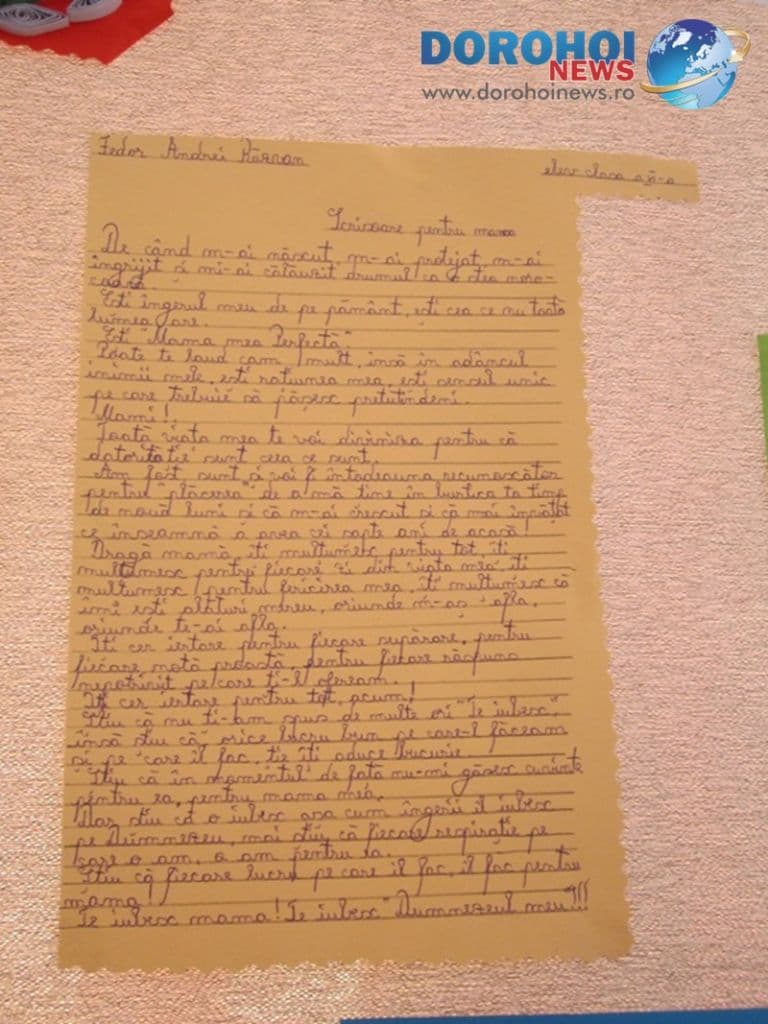 DOROHOI
NEWS
www.dorohoinews.ro
Fedor Andrei Răzvan
elev clasa a X-a
Scrisoare pentru mama
De când m-ai născut, m-ai protejat, m-ai
îngrijit si mi-ai călăuzit drumul ca o stea
Esti îngerul meu de pe pământ, esti cea ce nu toată
lumea are.
Esti "Mama mea Perfectă".
Poate te laud cam mult, însă în adâncul
inimii mele, esti ratiunea mea, esti sensul unic
pe care trebuie să păsesc pretutindeni.
Mami!
Toată viata mea te voi diviniza pentru că
datorită tie sunt ceea ce sunt.
Am fost, sunt si voi fi întodeauna recunoscător
pentru "plăcerea" de a mă tine în burtica ta timp
de nouă luni si că m-ai crescut si că m-ai învătat
ce înseamnă a avea cei sapte ani de acasă!
Dragă mamă, îti multumesc pentru tot, îti
multumesc pentru fiecare zi din viata mea, îti
multumesc pentru fericirea mea, îti multumesc că
îmi esti alături mereu, oriunde m-as afla,
oriunde te-ai afla.
Iti cer iertare pentru fiecare supărare, pentru
fiecare notă proastă, pentru fiecare răspuns
nepotrivit pe care ti-l ofeream.
Iti cer iertare pentru tot, acum!
Stiu că nu ti-am spus de multe ori "Te iubesc",
însă stiu că orice lucru bun pe care-l făceam
si pe care îl fac, tie îti aduce bucurie.
Stiu că în momentul de fată nu-mi găsesc cuvinte
pentru ea, pentru mama mea.
Dar stiu că o iubesc asa cum îngerii îl iubesc
pe Dumnezeu, mai stiu că fiecare respiratie pe
care o am, o am pentru ea.
Stiu că fiecare lucru pe care îl fac, îl fac pentru
mama!
Te iubesc mama! Te iubesc "Dumnezeul meu"!!!